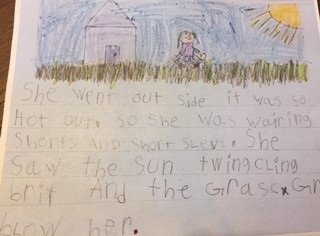 She went out side it was so
Hot out. so she was wairing
Shorts and short slevs. She
Saw the sun twingcling
brit And the Grass. Gr
blow her.